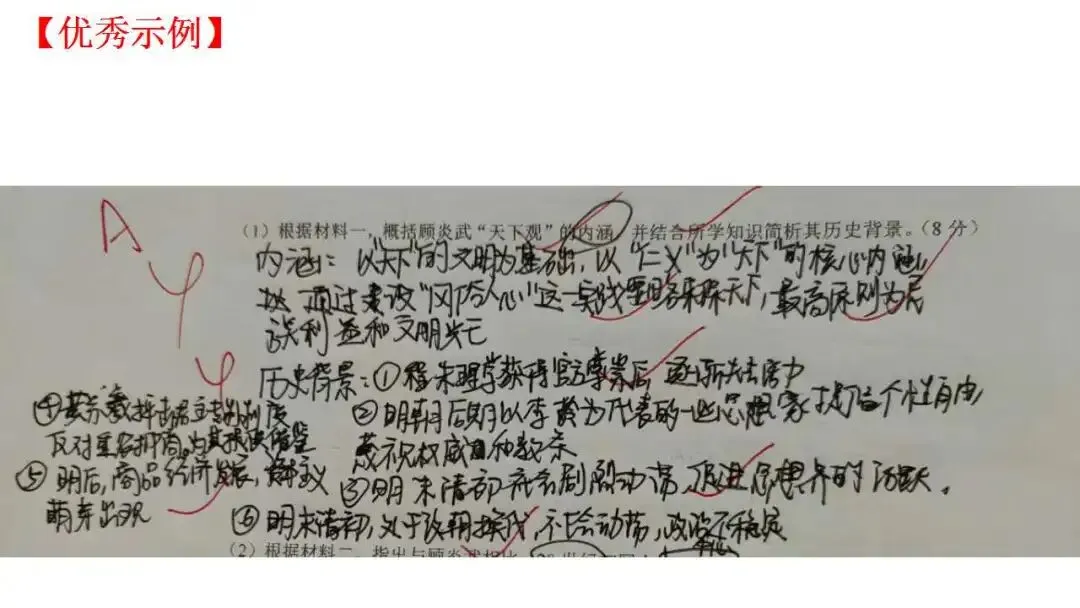 【优秀示例】
A
(1)根据材料一,概括顾炎武“天下观”的内涳,并结合所学知识简析其历史背景。(8分)
内涵:以“天下”的文明为基础,以“仁义”为“天下”的核心内涵,
通过建设“风俗人心”这一实践 来保天下,最高原则为民
族利益和文明兴亡
历史背景:①程朱理学获得官方尊崇后 逐渐失去活力
②明朝后期以李贽为代表的一些思想家 提倡个性自由,
蔑视权威和教条
③明末清初社会剧烈动荡,促进思想界的活跃。
④黄宗羲抨击君主专制制度
反对重农抑商,为其提供借鉴
⑤明后,商品经济发展,资本主义
萌芽出现
⑥明末清初,处于改朝换代,社会动荡,政治不稳定
(2)根据材料二,指出与顾炎武相比,20世纪